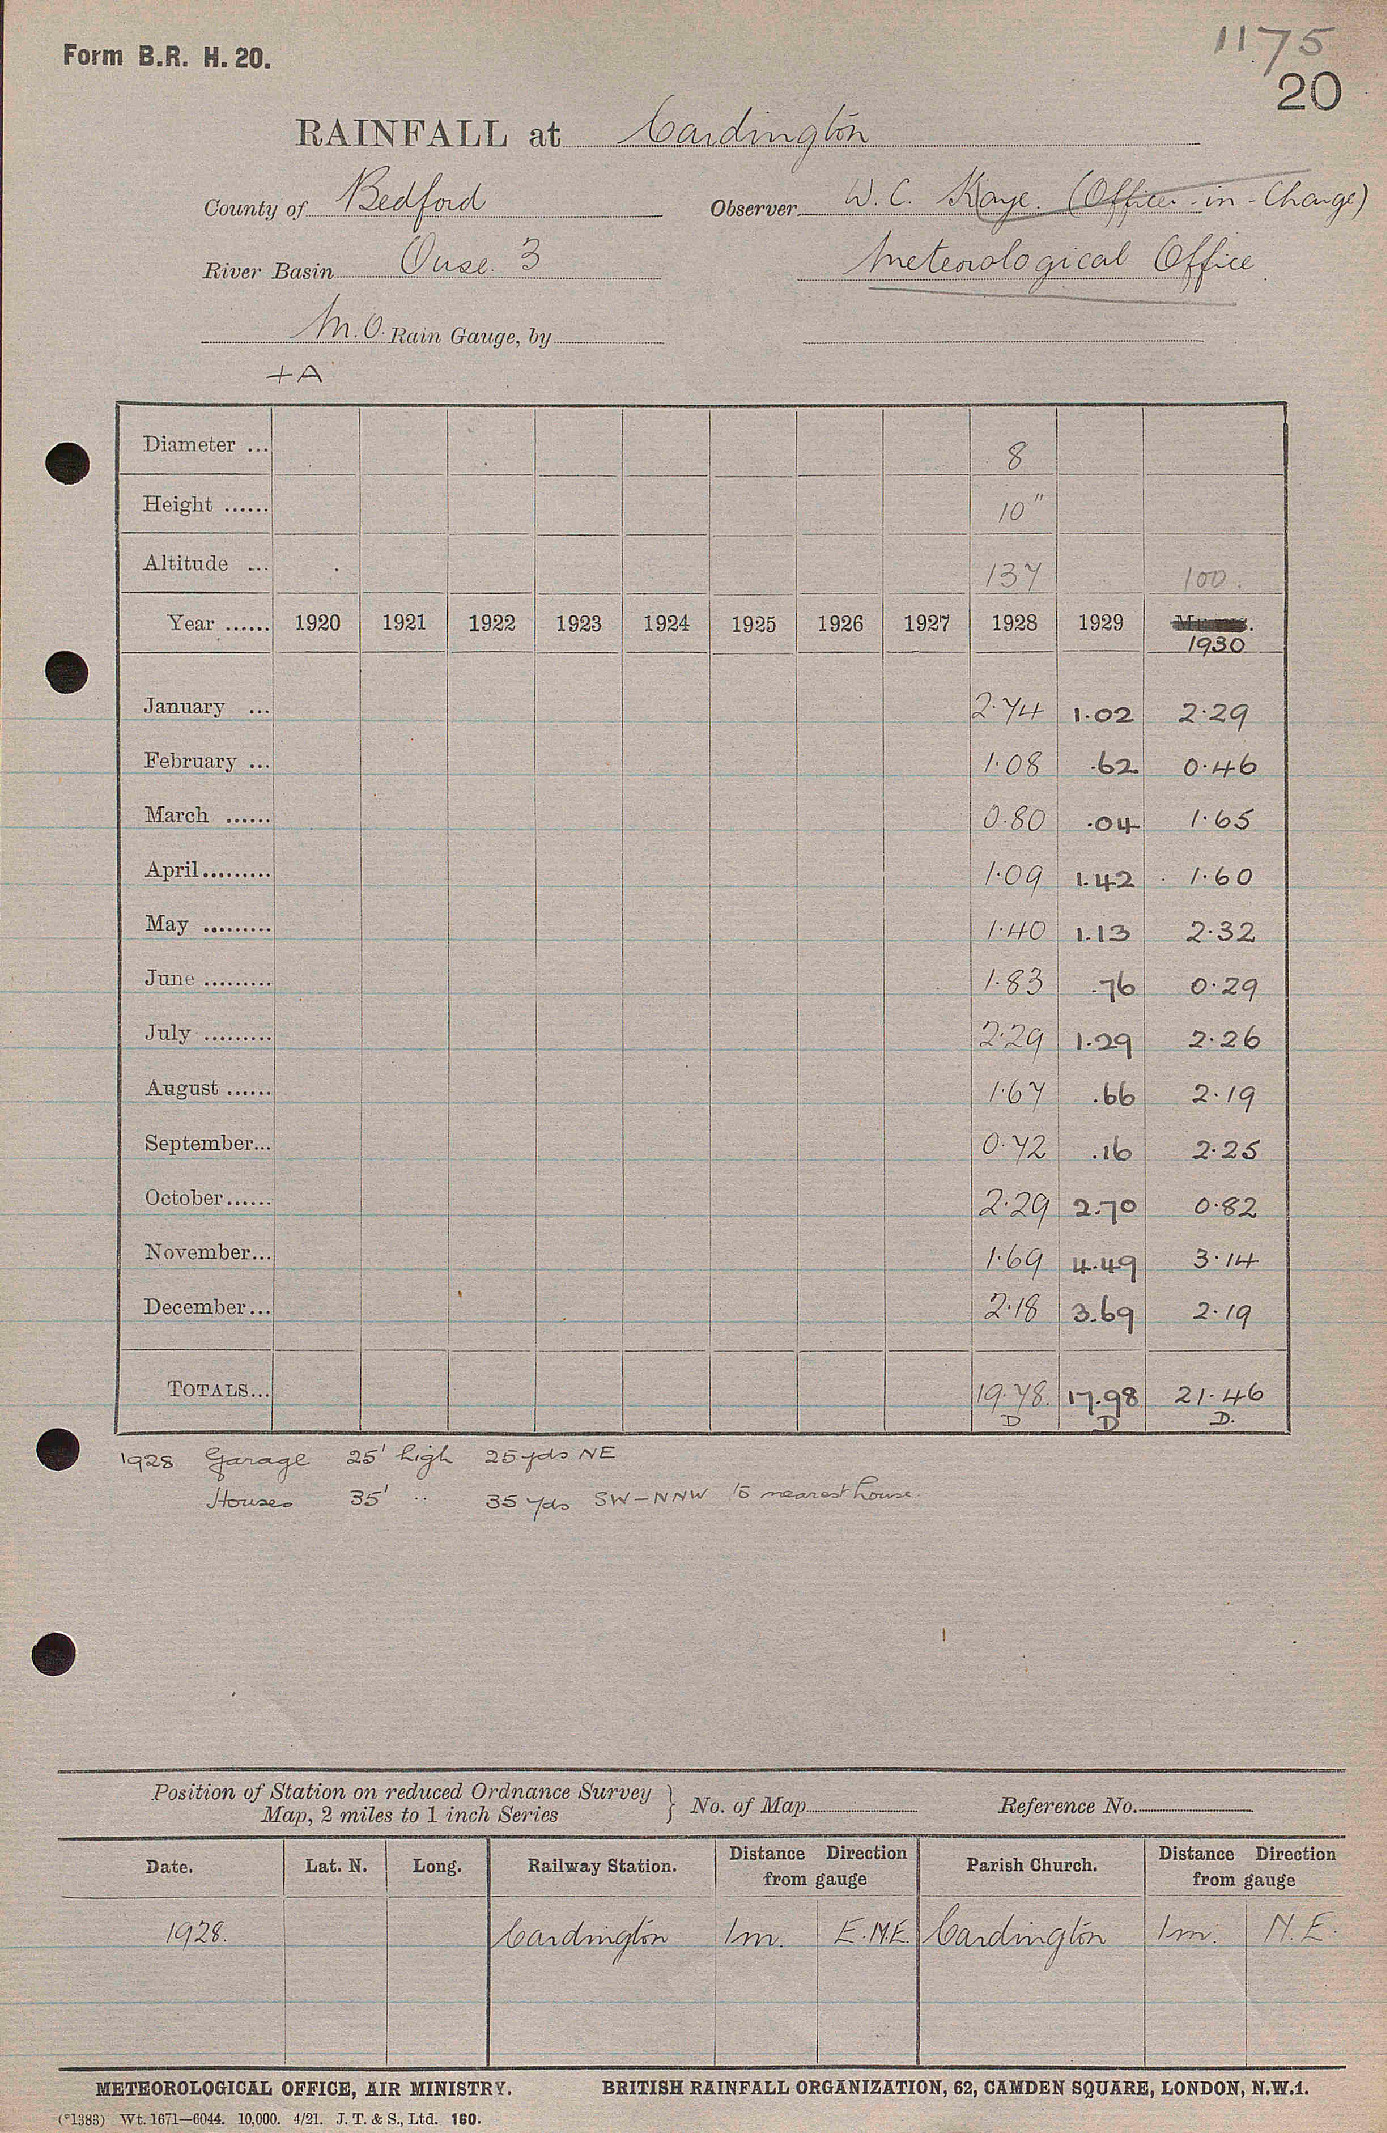 Form B.R. H. 20.
1175
20
RAINFALL at Cardington
County of Bedford Observer W. C. Kaye. (Officer-in-Charge)
River Basin Ouse. 3 Meteorological Office
M.O. Rain Gauge, by
+A
Diameter ... 8
Height ...... 10"
Altitude ... 137 100.
Year ...... 1920 1921 1922 1923 1924 1925 1926 1927 1928 1929 1930
January ... 2.74 1.02 2.29
February ... 1.08 .62 0.46
March ...... 0.80 .04 1.65
April ......... 1.09 1.42 1.60
May ......... 1.40 1.13 2.32
June ......... 1.83 .76 0.29
July ......... 2.29 1.29 2.26
August ...... 1.67 .66 2.19
September... 0.72 .16 2.25
October...... 2.29 2.70 0.82
November... 1.69 4.49 3.14
December... 2.18 3.69 2.19
TOTALS... 19.78 17.98 21.46
D D D.
1928 Garage 25' high 25 yds NE
Houses 35' .. 35 yds SW-NNW to nearest house.
Position of Station on reduced Ordnance Survey Map, 2 miles to 1 inch Series } No. of Map Reference No.
Date. Lat. N. Long. Railway Station. Distance Direction from gauge Parish Church. Distance Direction from gauge
1928. Cardington 1m. E.N.E. Cardington 1m. N.E.
METEOROLOGICAL OFFICE, AIR MINISTRY. BRITISH RAINFALL ORGANIZATION, 62, CAMDEN SQUARE, LONDON, N.W.1.
(*1383) Wt. 1671—6044. 10,000. 4/21. J. T. & S., Ltd. 160.